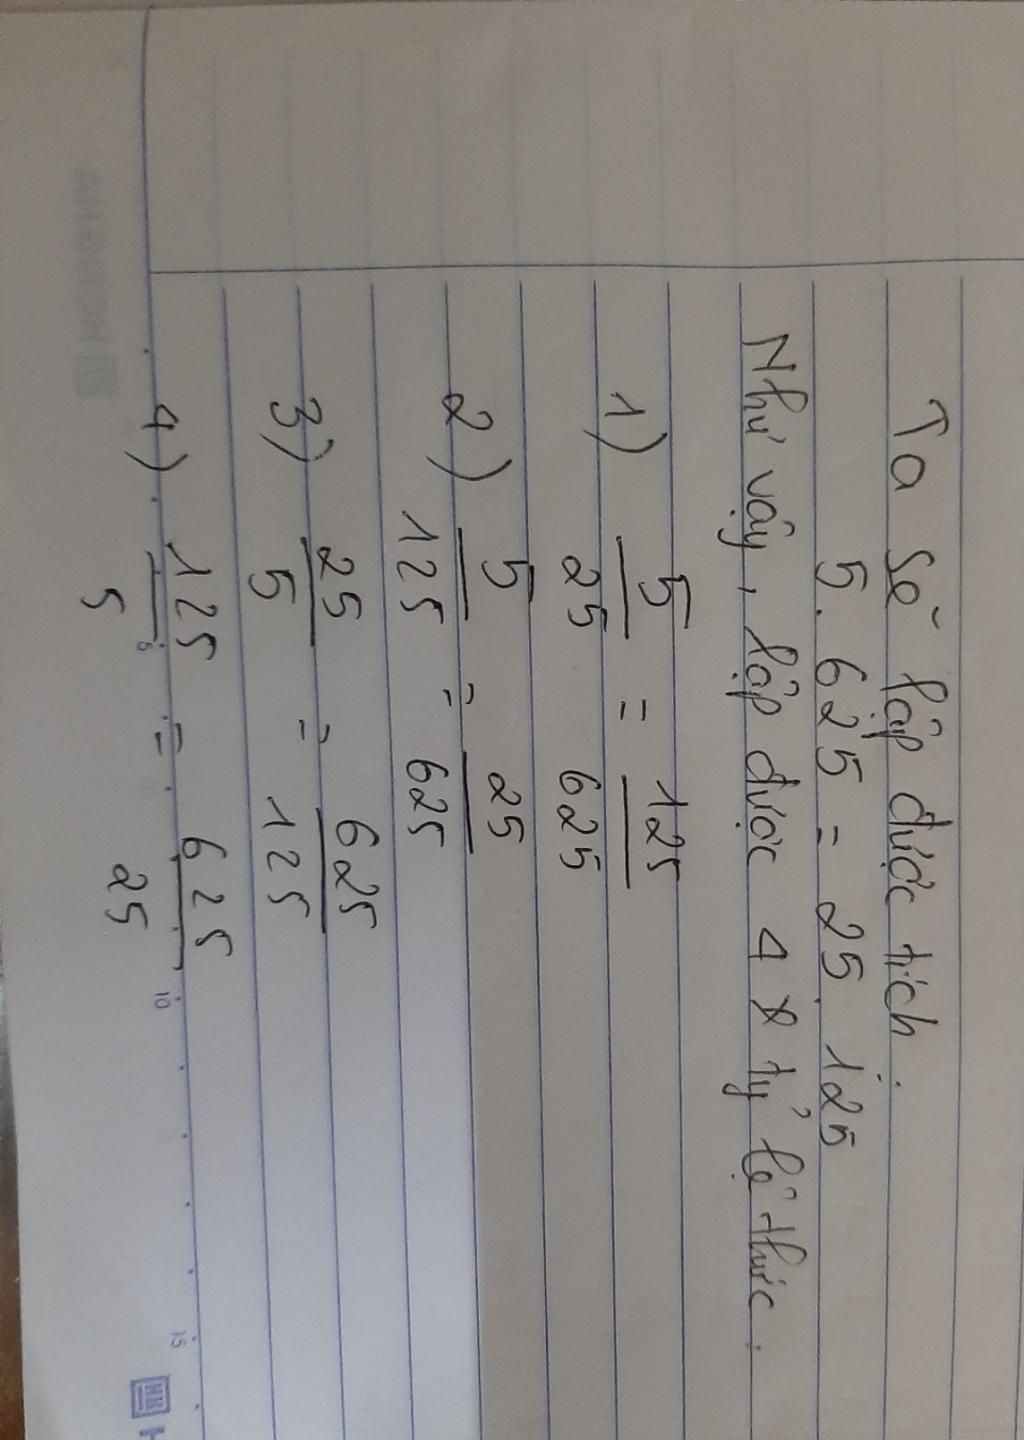 Ta sẽ lập được tích.
5. 625 = 25. 125
Như vậy, lập được 4 tỷ lệ thức.
1) 5/25 = 125/625
2) 5/125 = 25/625
3) 25/5 = 625/125
4) 125/5 = 625/25
5
10
15